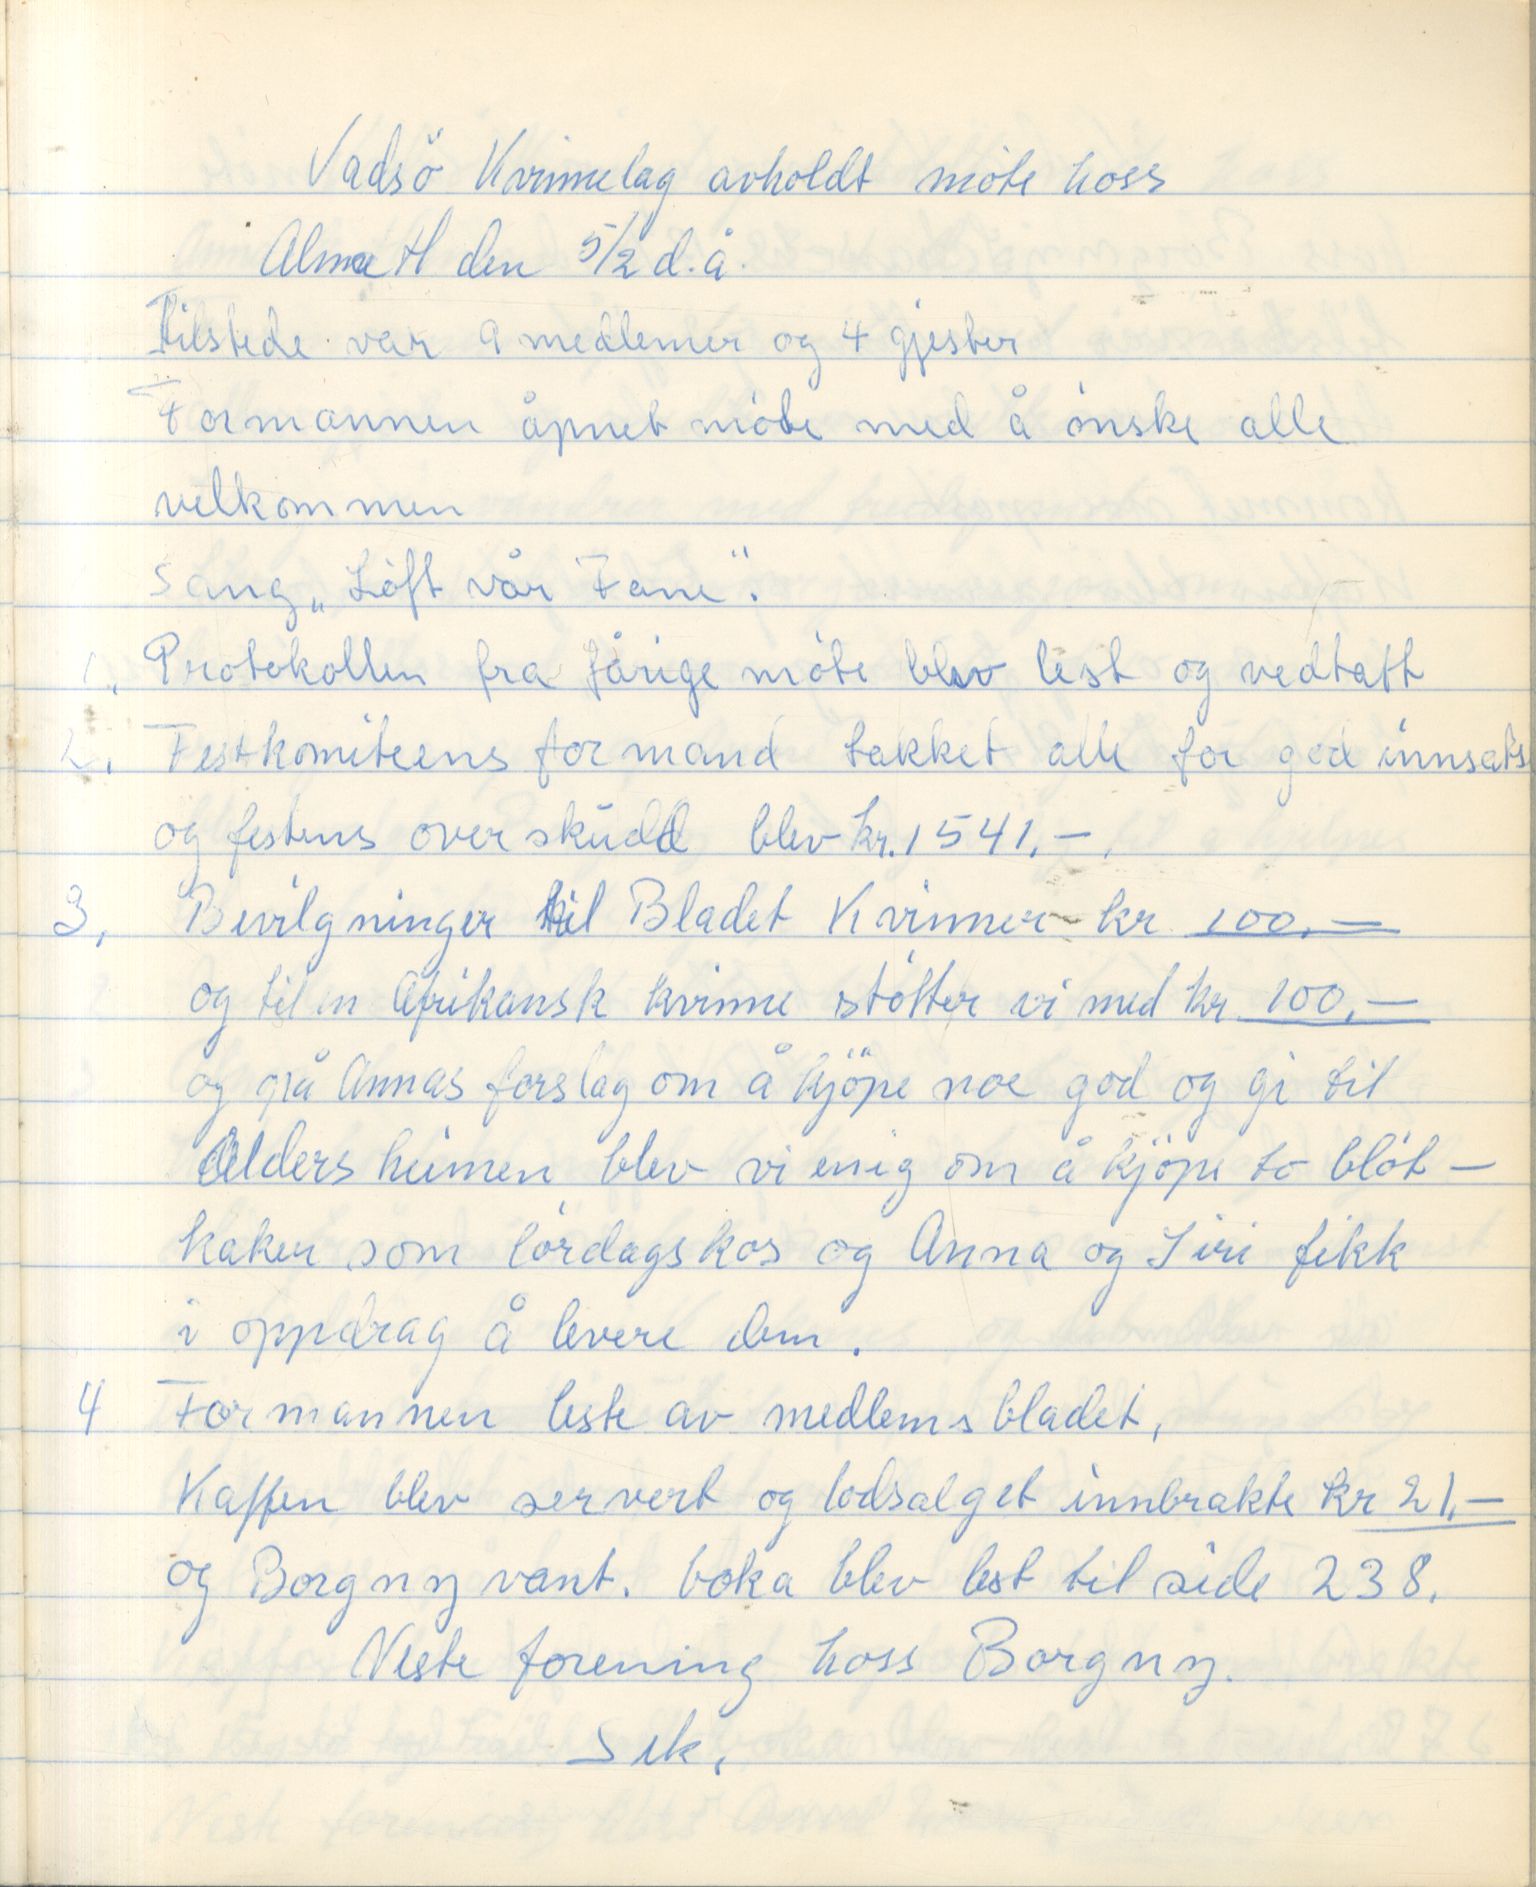 Vadsö Kvinnelag avholdt möte hoss
Alma H den 5/2 d.å.
Tilstede var 9 medlemer og 4 gjester
Formannen åpnet möte med å önske alle
velkommen
Sang „Löft vår Fane".
1. Protokollen fra förige möte blev lest og vedtatt
2. Festkomiteens formand takket alle for god innsats
og festens overskudd blev kr. 1541.-
3. Bevilgninger til Bladet Kvinner kr 100.-
og til en Afrikansk kvinne stötter vi med kr 100.-
og på Annas forslag om å kjöpe noe god og gi til
Aldersheimen blev vi enig om å kjöpe to blöt-
kaker som lördagskos og Anna og Siri fikk
i oppdrag å levere dem.
4 Formannen leste av medlemsbladet,
Kaffen blev servert og lodsalget innbrakte kr 21.-
og Borgny vant. boka blev lest til side 238.
Neste forening hoss Borgny.
Sek.